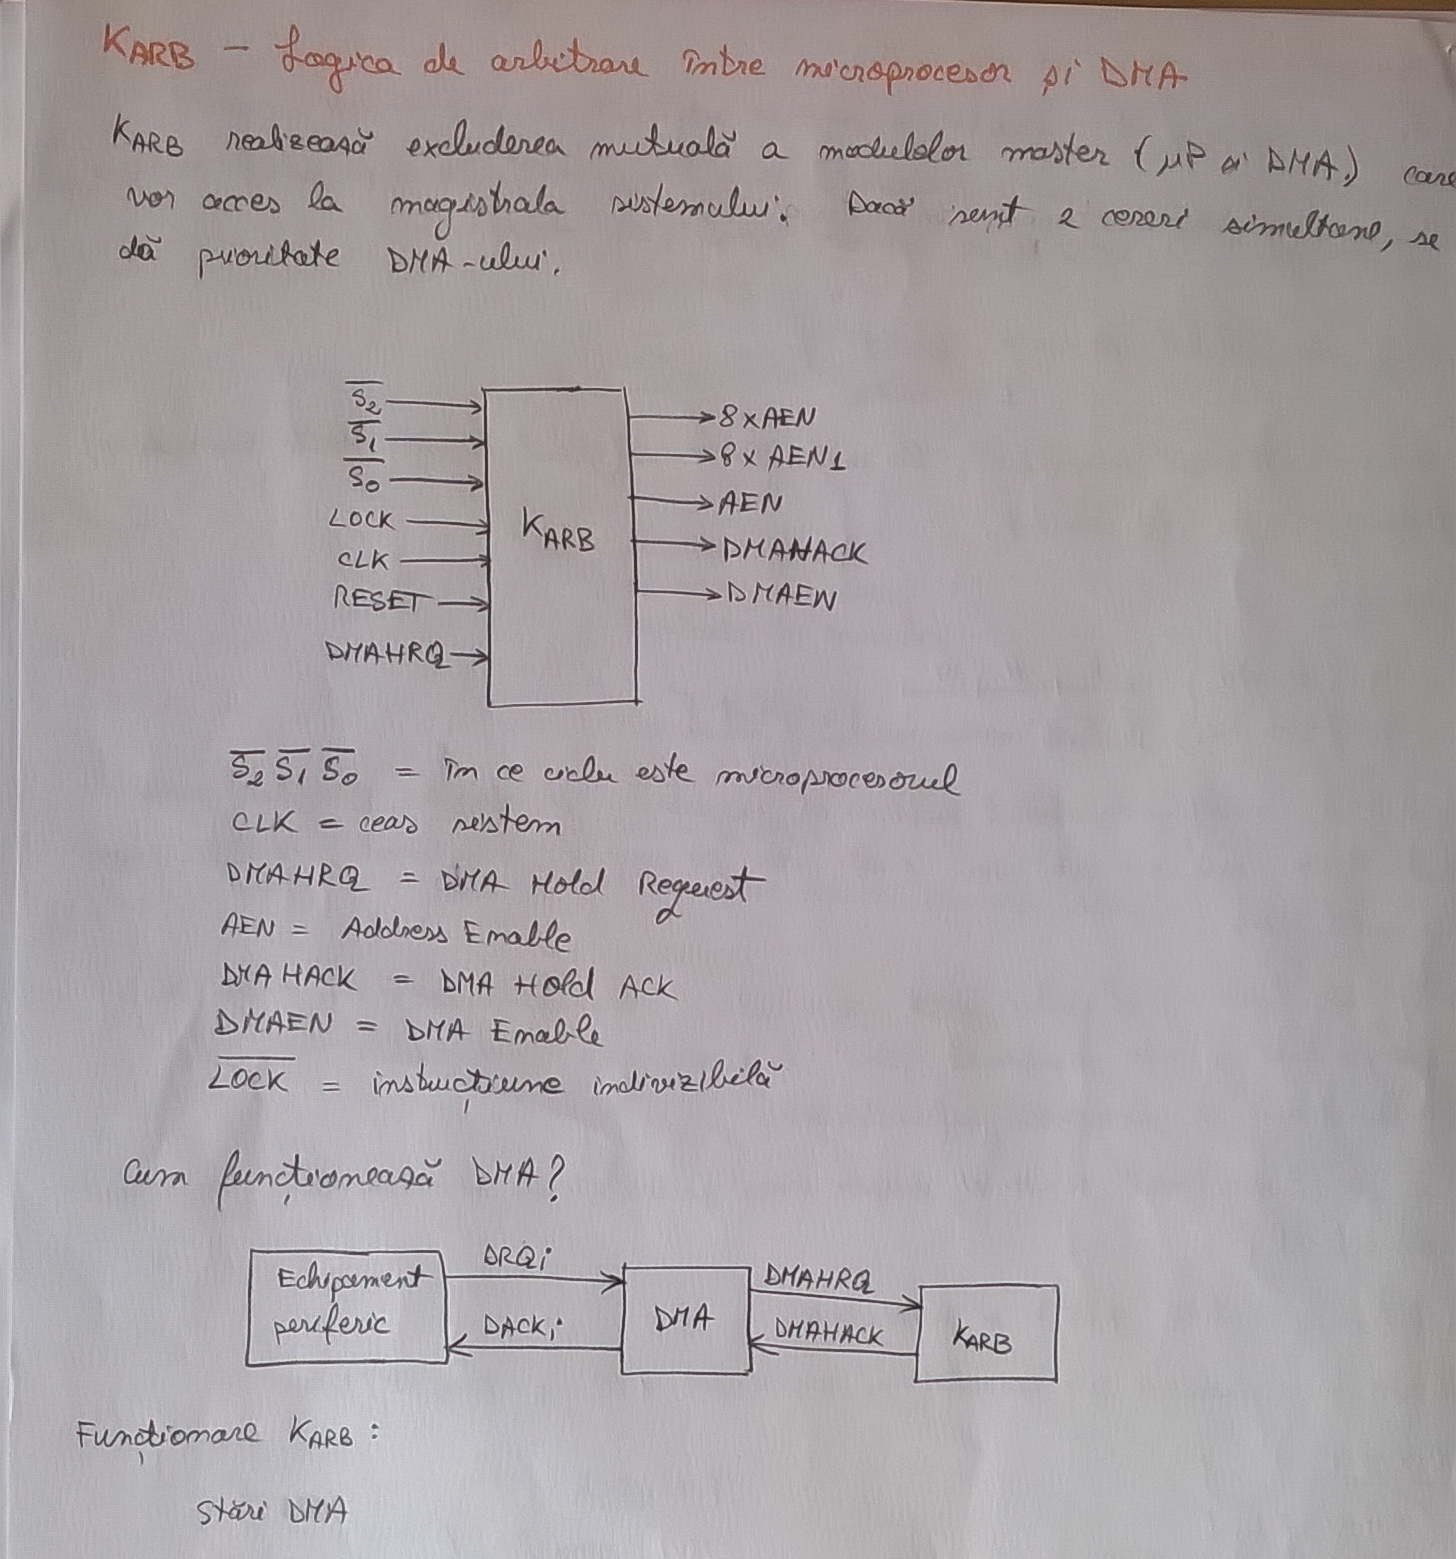 KARB - Logica de arbitrare între microprocesor și DMA
KARB realizează excluderea mutuală a modulelor master (μP și DMA) care
vor acces la magistrala sistemului. Dacă sunt 2 cereri simultane, se
dă prioritate DMA-ului.
S̅2̅
S̅1̅
S̅0̅
LOCK
CLK
RESET
DMAHRQ
KARB
8xAEN
8xAEN1
AEN
DMAHACK
DMAEN
S̅2̅ S̅1̅ S̅0̅ = în ce ciclu este microprocesorul
CLK = ceas sistem
DMAHRQ = DMA Hold Request
AEN = Address Enable
DMAHACK = DMA Hold ACK
DMAEN = DMA Enable
L̅O̅C̅K̅ = instrucțiune indivizibilă
Cum funcționează DMA?
Echipament
periferic
DRQi
DACKi
DMA
DMAHRQ
DMAHACK
KARB
Funcționare KARB :
Stări DMA